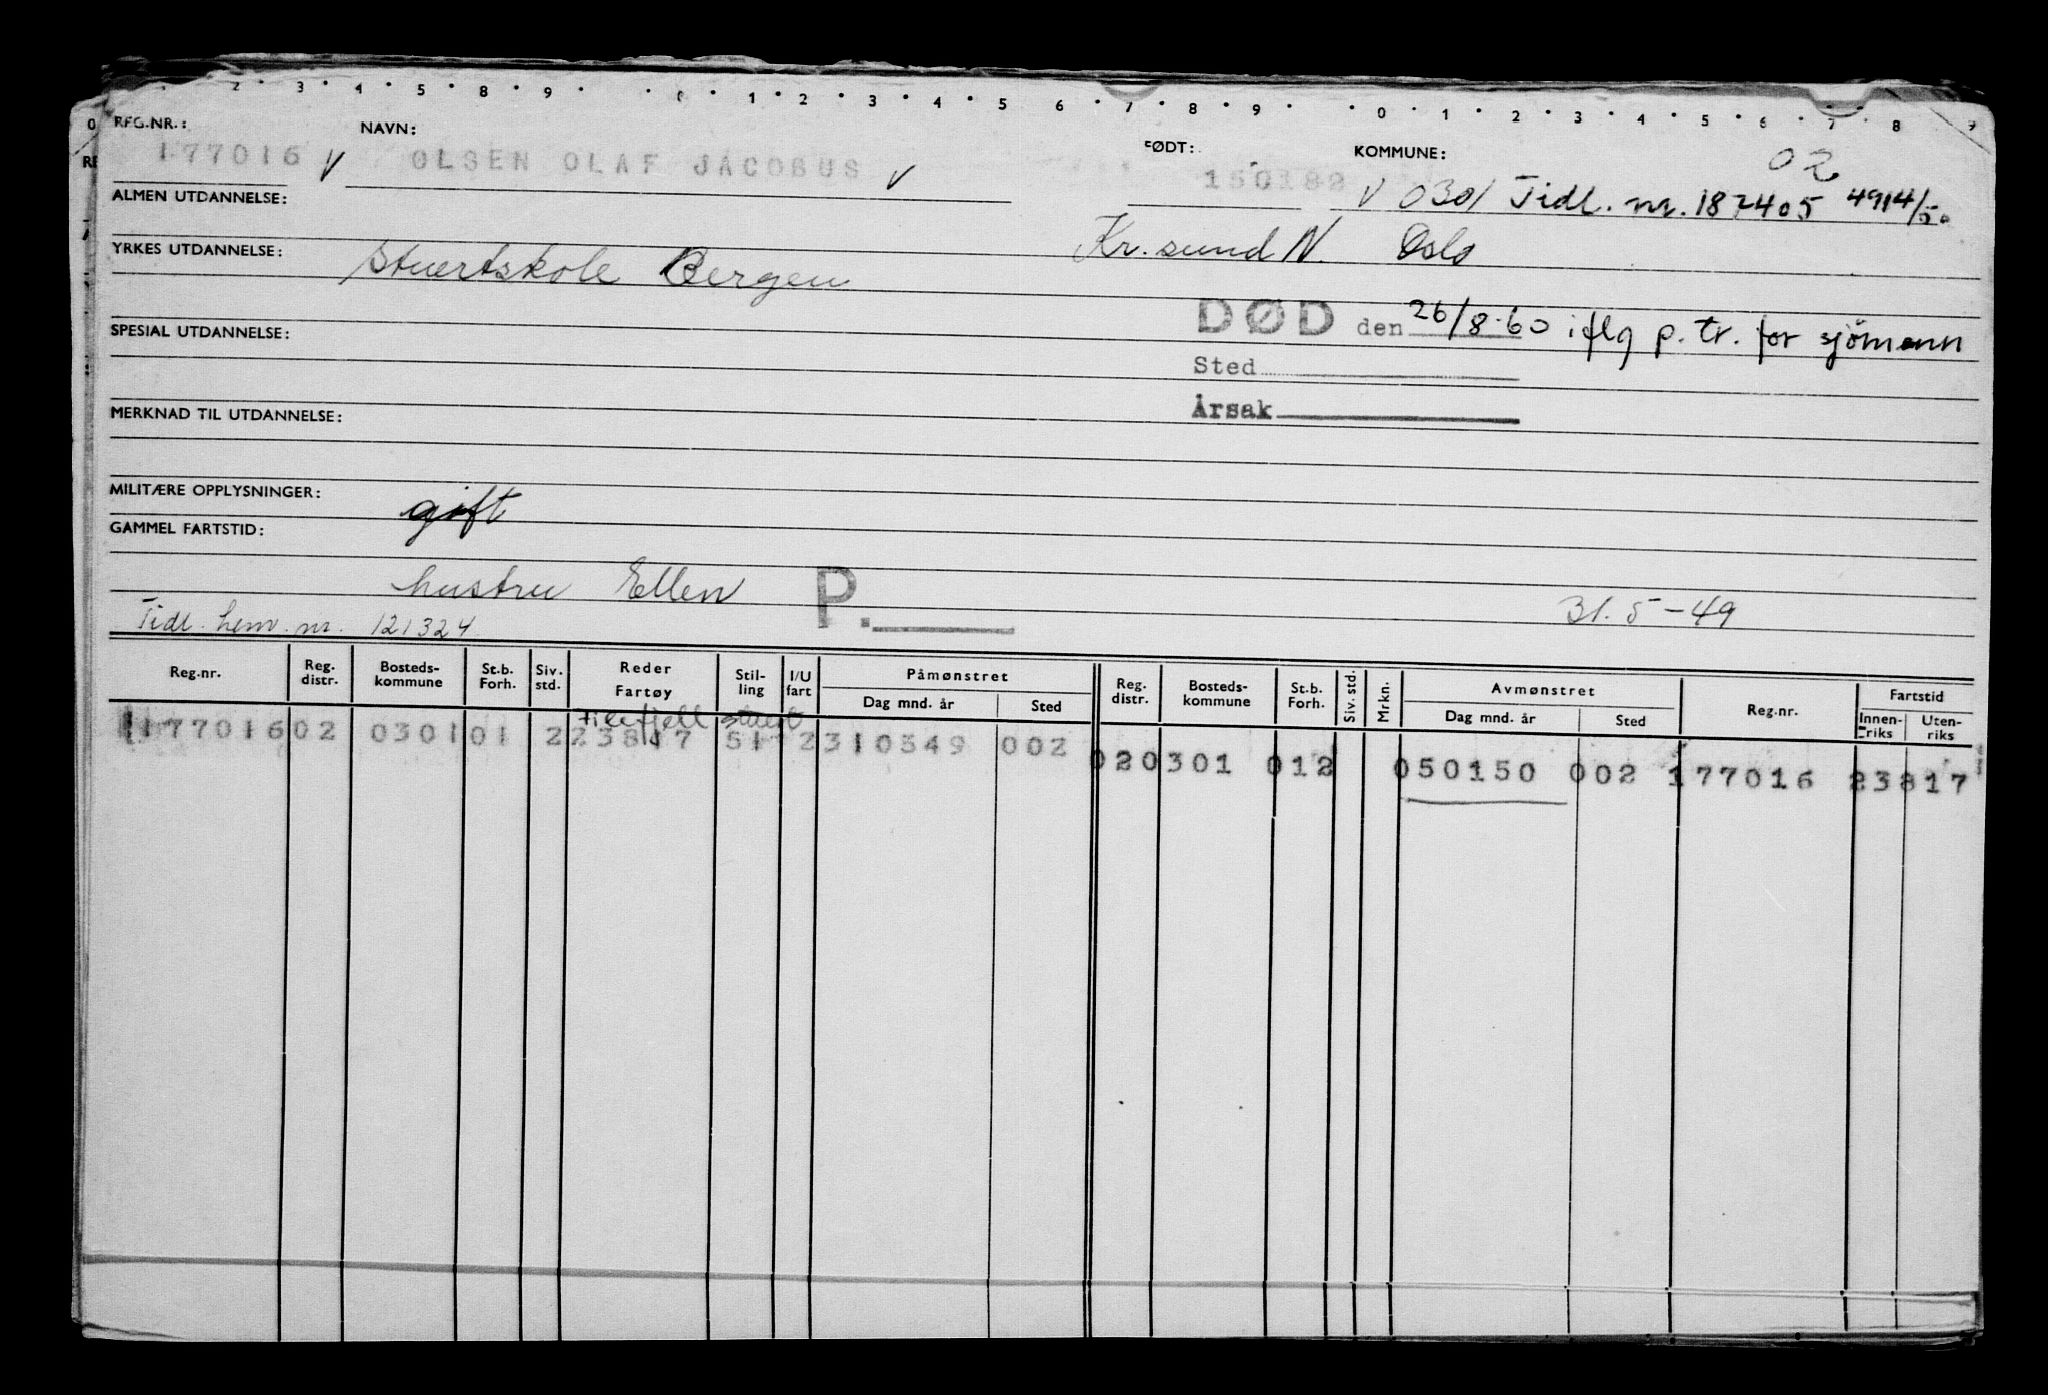 2 3 4 5 8 9 1 2 3 4 5 6 7 8 9 0 1 2 3 4 5 6 7 8 9
0 REG.NR.: NAVN: FØDT: KOMMUNE: 02
177016 V OLSEN OLAF JACOBUS V 150182 V 0301 Tidl. nr. 187405 4914/50
ALMEN UTDANNELSE:
Kr.sund N. Oslo
YRKES UTDANNELSE: Stuertskole Bergen
DØD den 26/8-60 iflg p. tr. for sjömenn
SPESIAL UTDANNELSE:
Sted
Årsak
MERKNAD TIL UTDANNELSE:
MILITÆRE OPPLYSNINGER: gift
GAMMEL FARTSTID:
hustru Ellen P. 31. 5 - 49
Tidl. hem. nr. 121324
Reg.nr. Reg. distr. Bosteds- kommune St.b. Forh. Siv. std. Reder Fartøy Stil- ling I/U fart Påmønstret Dag mnd. år Sted Reg. distr. Bosteds- kommune St.b. Forh. Siv. std. Mrkn. Avmønstret Dag mnd. år Sted Reg.nr. Fartstid Innen- riks Uten- riks
Filefjell stuert
177016 02 0301 01 2 23817 51 2 310549 002
02 0301 012 050150 002 177016 23817